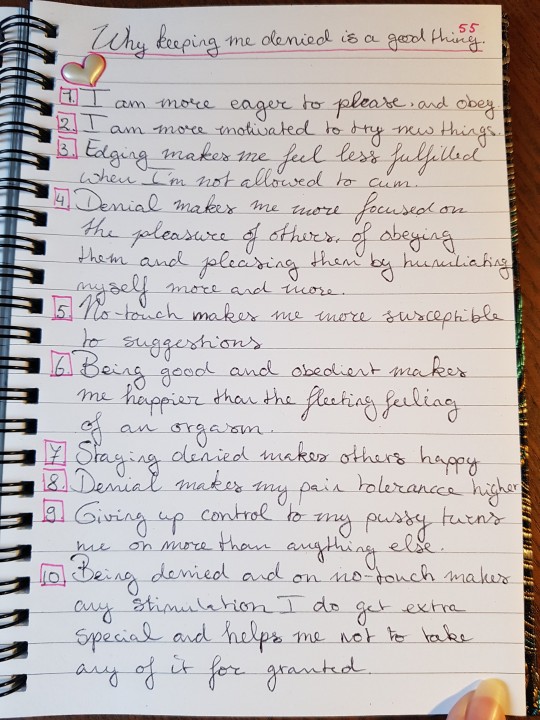 55
Why keeping me denied is a good thing.
1. I am more eager to please, and obey.
2. I am more motivated to try new things.
3. Edging makes me feel less fulfilled
when I'm not allowed to cum.
4. Denial makes me more focused on
the pleasure of others, of obeying
them and pleasing them by humiliating
myself more and more.
5. No-touch makes me more susceptible
to suggestions
6. Being good and obedient makes
me happier than the fleeting feeling
of an orgasm.
7. Staying denied makes others happy
8. Denial makes my pain tolerancce higher
9. Giving up control to my pussy turns
me on more than anything else.
10. Being denied and on no-touch makes
any stimulation I do get extra
special and helps me not to take
any of it for granted.